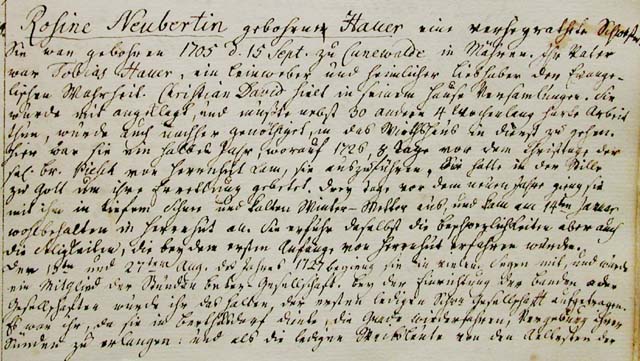 Rosine Neubertin geborhne Hauer eine verheyrathete Schwester
Sie war gebohren 1705 d. 15 Sept. zu Cunewalde in Mähren. Ihr Vater
war Tobias Hauer, ein Leinweber und heimlicher Liebhaber der Evange-
lischen Wahrheit. Christian David hielt in seinem Hause Versamlungen. Sie
wurde mit angeklagt, und mußte nebst 30 andern 4 Wochenlang harte Arbeit
thun, wurde auch nachher genöthiget, in das Wirthshaus in dienst zu gehen.
hier war sie ein halbes Jahr, worauf 1726, 8 Tage vor dem Christtage der
sel. br. von Herrnhut kam, sie auszuführen. Sie hatte in der Stille
zu Gott um ihre Errettung gebetet. Drey Tage vor dem neuen Jahre ging sie
mit ihm in tiefem Schnee und kalten Winter-Wetter aus, und kam am 14ten Januar
wohlbehalten in Herrnhut an. Sie erfuhr daselbst die beschwerlichkeiten aber auch
die Seligkeiten, die bey dem ersten Anfange von Herrnhut erfahren wurden.
Den 13ten und 27ten Aug. des Jahres 1727 beging sie in vielen Segen mit, und wurde
ein Mitglied der Stunden beter Gesellschaft. bey der Einrichtung der banden oder
Gesellschaften wurde ihr das halten der ersten ledigen Schw. Gesellschafft aufgetragen.
Es war ihr, da sie in berthelsdorf diente, die Gnade wiederfahren, Vergebung ihrer
Sünden zu erlangen: und als die ledigen von den Aeltesten der